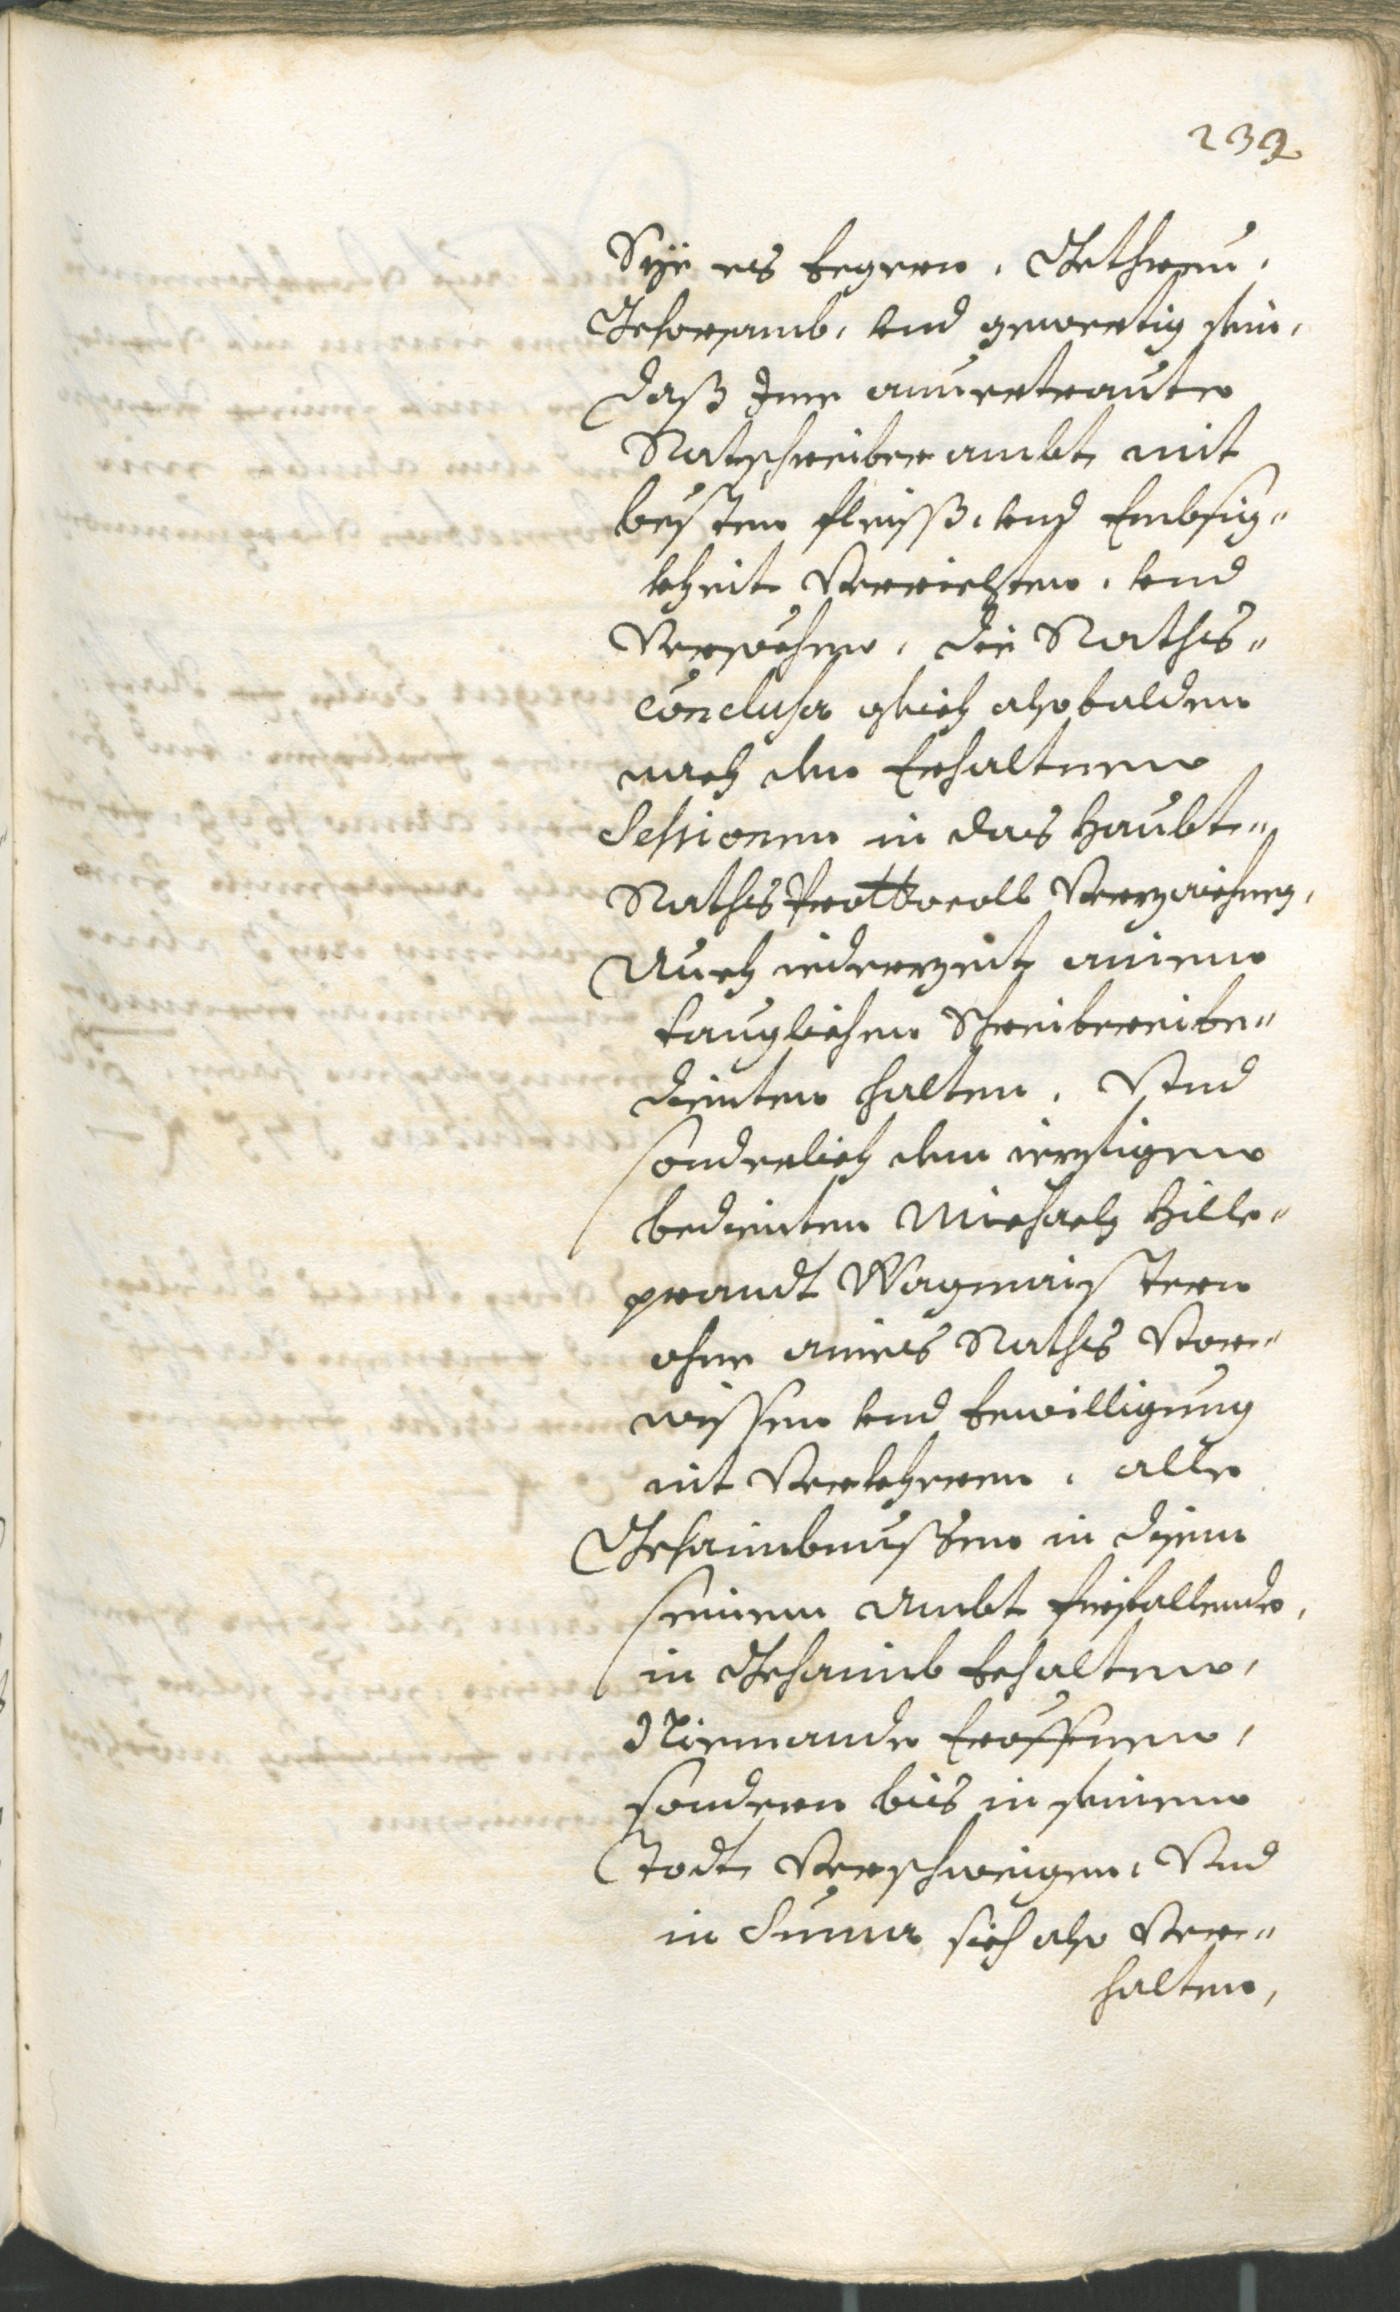 232
Sÿe es begern, Gethreu,
Gehorsamb, vnd gewertig sein,
daß Jme anuertraute
Ratschreiber ambt, mit
bestem fleiss, vnd Embsig-
kheit Verrichten, vnd
Versehen, die Raths-
conclusa gleich alsobalden
nach den Erhaltnen
Sessionen in das Haubt-
Raths Prottocoll Verzaichnen,
Auch iederzeit ainen
tauglichen Schreibereibe-
dienten halten, Vnd
sonderlich den iezigen
bedienten Michaeln Hille-
prandt Wagmaistern
ohne aines Raths Vor-
wissen vnd bewilligung
nit Verkheren, alle
Gehaimbnussen in disem
seinem Ambt fürfallende,
in Gehaimb behalten,
Niemande Eröffnen,
sondern bis in seinen
Todt Verschweigen, Vnd
in Summa sich also Ver-
halten,